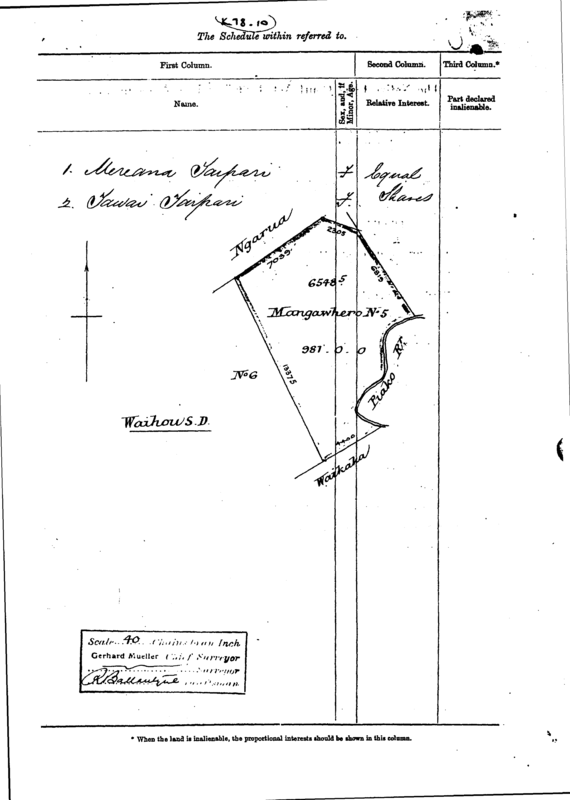 K 78.10
The Schedule within referred to.
First Column.
Second Column.
Third Column.*
Name.
Sex, and, if Minor, Age.
Relative Interest.
Part declared inalienable.
1. Mereana Taipari F Equal
2. Tawai Taipari F. Shares
Ngarua
7039
2305
6815
6548⁵
Mangawhero No 5
981. 0. 0
No 6
13375
Piako Rr.
Waihou S.D.
4400
Waikaka
Scale 40 Chains to an Inch
Gerhard Mueller Chief Surveyor
Surveyor
* When the land is inalienable, the proportional interests should be shown in this column.